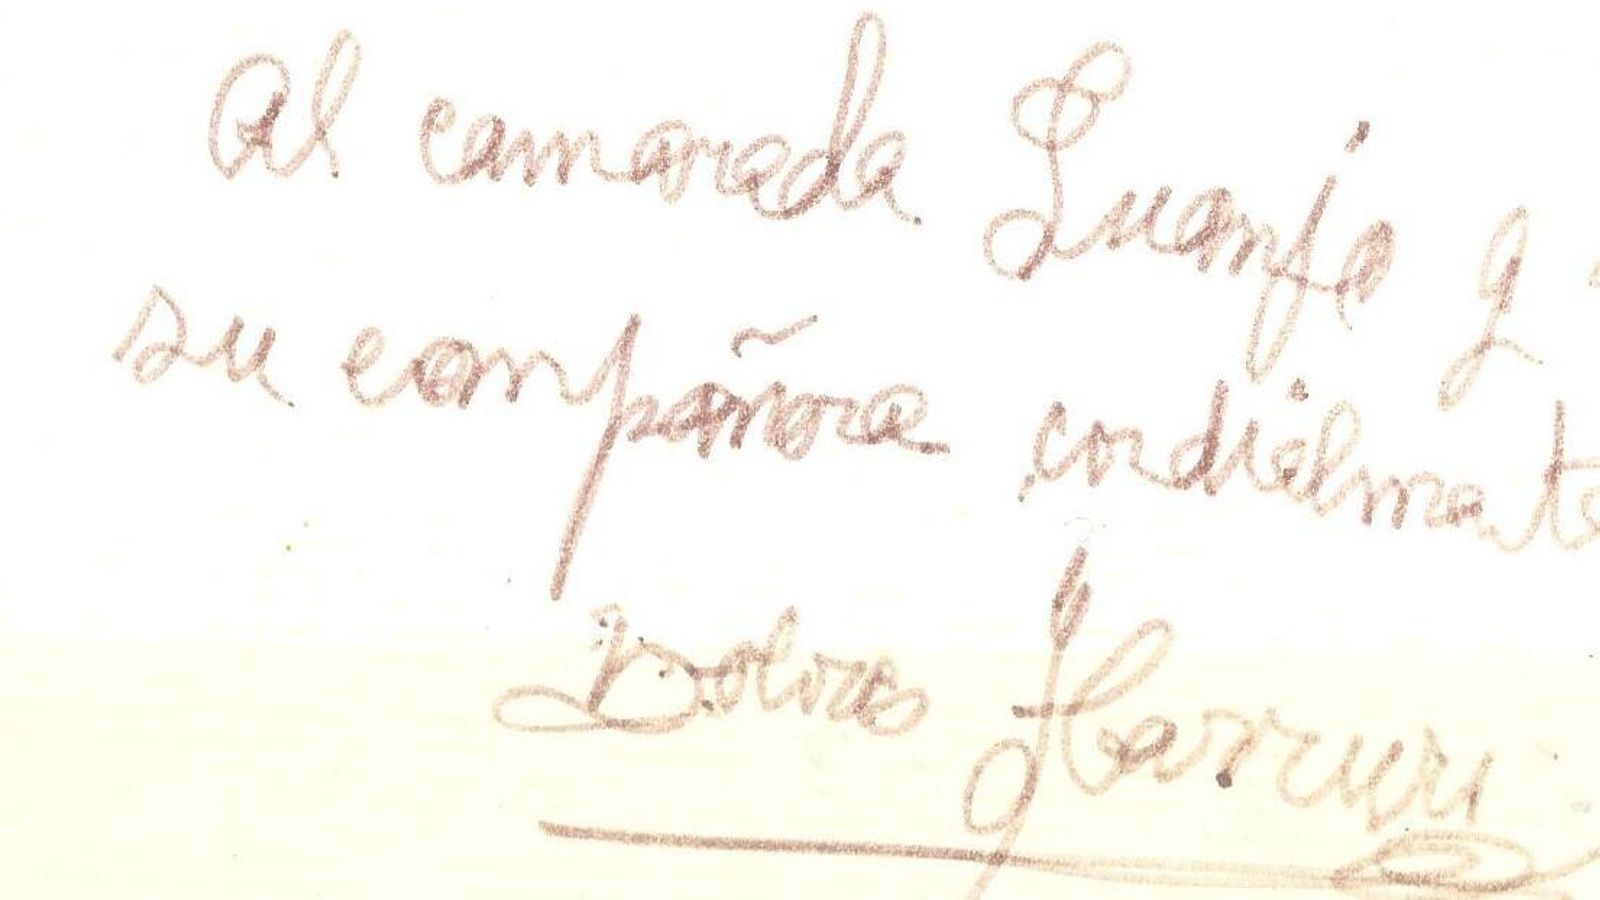 Al camarada Luanjo y
su compañera cordialmente
Dolores Ibarruri